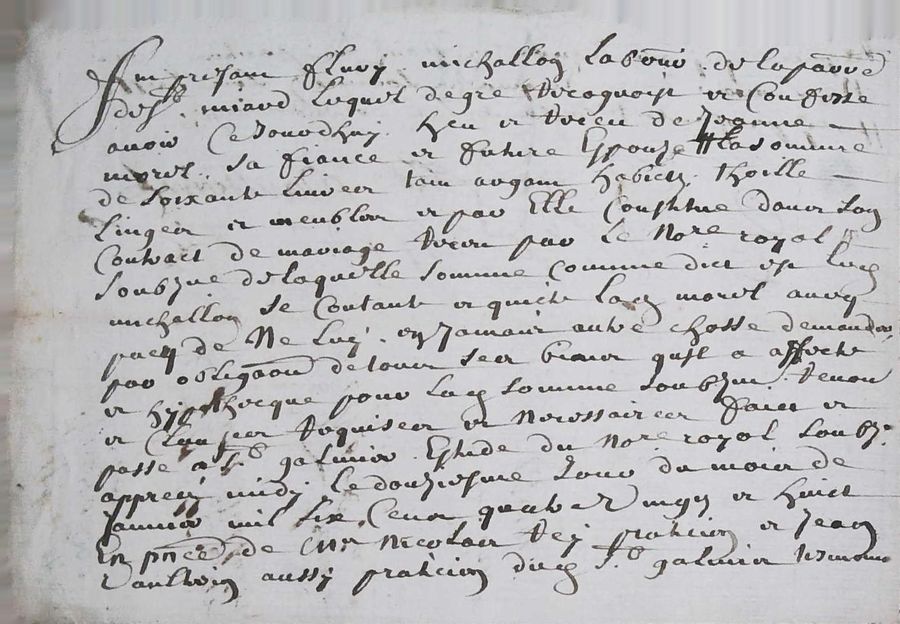 Fut presant fleury michallon laboureur de la parre
de St miard lequel de gre recognoist et confesse
avoir ce Jourdhuy heu et receu de Jeanne
morel sa fiance et future Espouze # la somme
de soixante livres tain argant habietz thoille
linges et meubles et par Elle constitue dans son
Contract de mariage receu par le Nore royal
soubzne de laquelle somme comme dict est led
michallon se contante et quicte lad morel avecq
pact de Ne luy en Jamais autre chosse demander
par obligaon de tous ses biens qu'il a affecte
et hypothecque pour lad somme soubzm renon
et clauses requises et necessaires faict et
passe a St galmier Estude du Nore royal soubze
appres midy le douziesme Jour du mois de
Janvier mil six Cens quatre vingtz et huict
En pnce de Mre Nicolas rey praticien et Jean
aussy praticien dud St galmier tesmoins